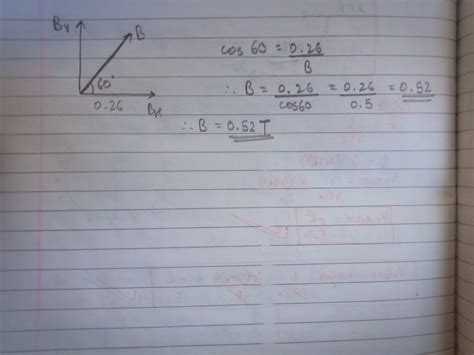 Bv
B
60°
0.26
BH
cos 60 = 0.26 / B
∴ B = 0.26 / cos60 = 0.26 / 0.5 = 0.52
∴ B = 0.52 T